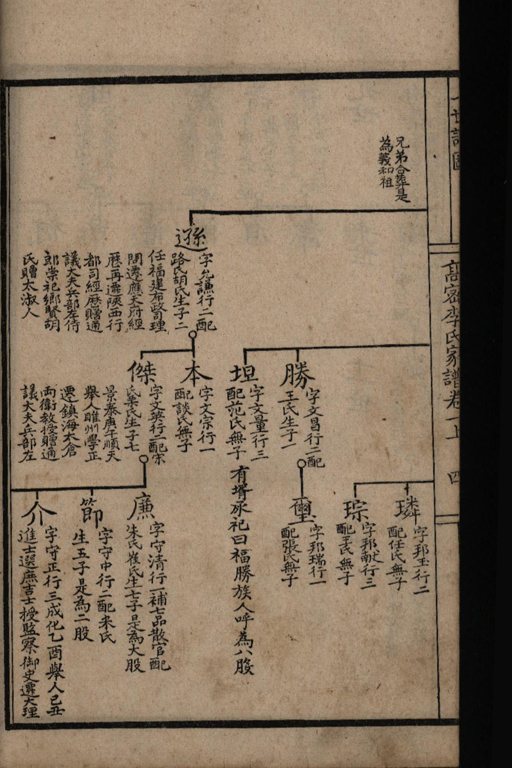 世譜圖
高密李氏家譜卷上 四
兄弟合葬是
為義和祖
遜
字允謙行二配
路氏胡氏生子二
任福建布政司理
問遷應天府經
歷再遷陝西行
都司經歷贈通
議大夫兵部左侍
郎崇祀鄉賢胡
氏贈太淑人
勝
字文昌行二配
王氏生子一
坦
字文量行三
配范氏無子
有壻承祀曰福勝族人呼為八股
本
字文宗行一
配談氏無子
傑
字文英行二配宗
氏吳氏生子七
景泰庚午順天
舉人睢州學正
遷鎮海太倉
兩衛教授贈通
議大夫兵部左
璘
字邦玉行二
配任氏無子
琮
字邦獻行三
配王氏無子
璽
字邦瑞行一
配張氏無子
廉
字守清行一補七品散官配
朱氏崔氏生七子是為大股
節
字守中行二配朱氏
生五子是為二股
介
字守正行三成化乙酉舉人己丑
進士選庶吉士授監察御史遷大理